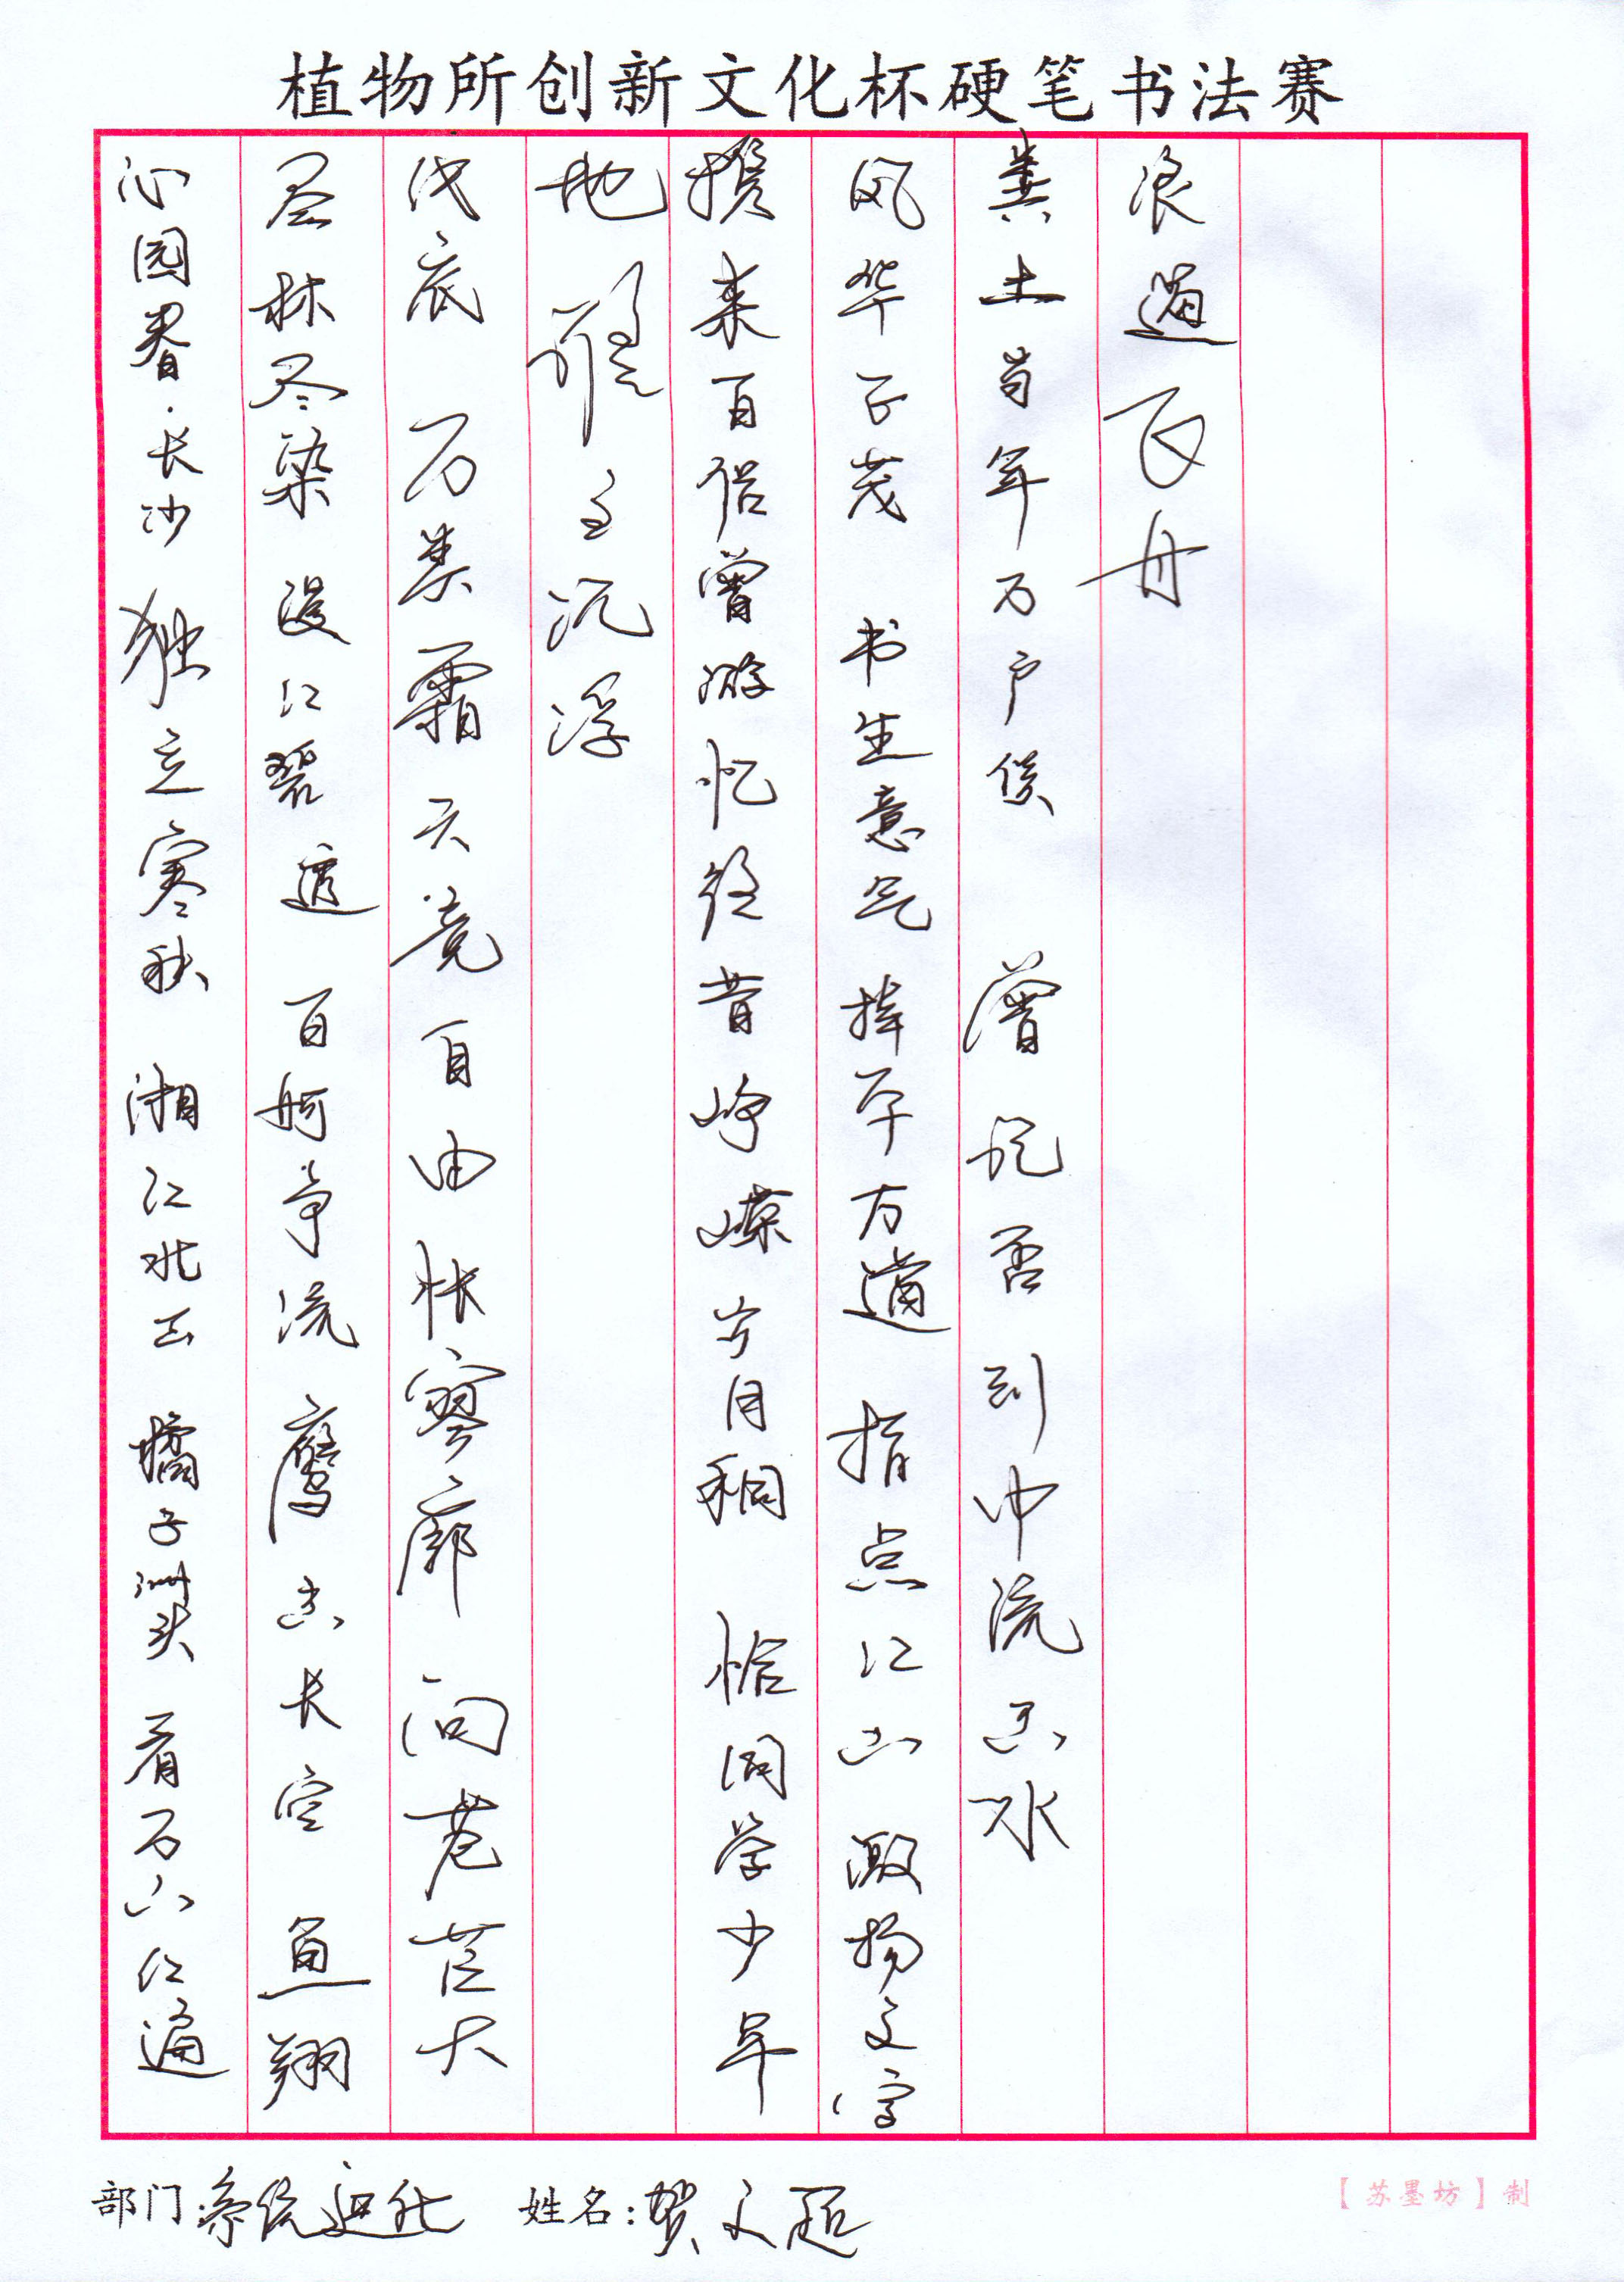 植物所创新文化杯硬笔书法赛
沁园春·长沙 独立寒秋 湘江北去 橘子洲头 看万山红遍
层林尽染 漫江碧透 百舸争流 鹰击长空 鱼翔
浅底 万类霜天竞自由 怅寥廓 问苍茫大
地 谁主沉浮
携来百侣曾游忆往昔峥嵘岁月稠 恰同学少年
风华正茂 书生意气 挥斥方遒 指点江山 激扬文字
粪土当年万户侯 曾记否 到中流击水
浪遏飞舟
部门:系统进化 姓名:贺文超
【苏墨坊】制